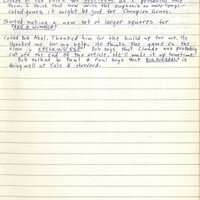 form & said that now with the emphasis on more compli-
cated games it might be good for Champion Games.
Started making a new set of larger squares for
"TAKE A NUMBER"
Called Bob Abel. Thanked him for the build up for me. He
thanked me for my help. He thinks the game on the
floor is Bob says that Claude was probably
cut off the end of the article. He'll make it up sometime!
Bob talked to Paul & Paul says that is
doing well at Yale & Harvard.